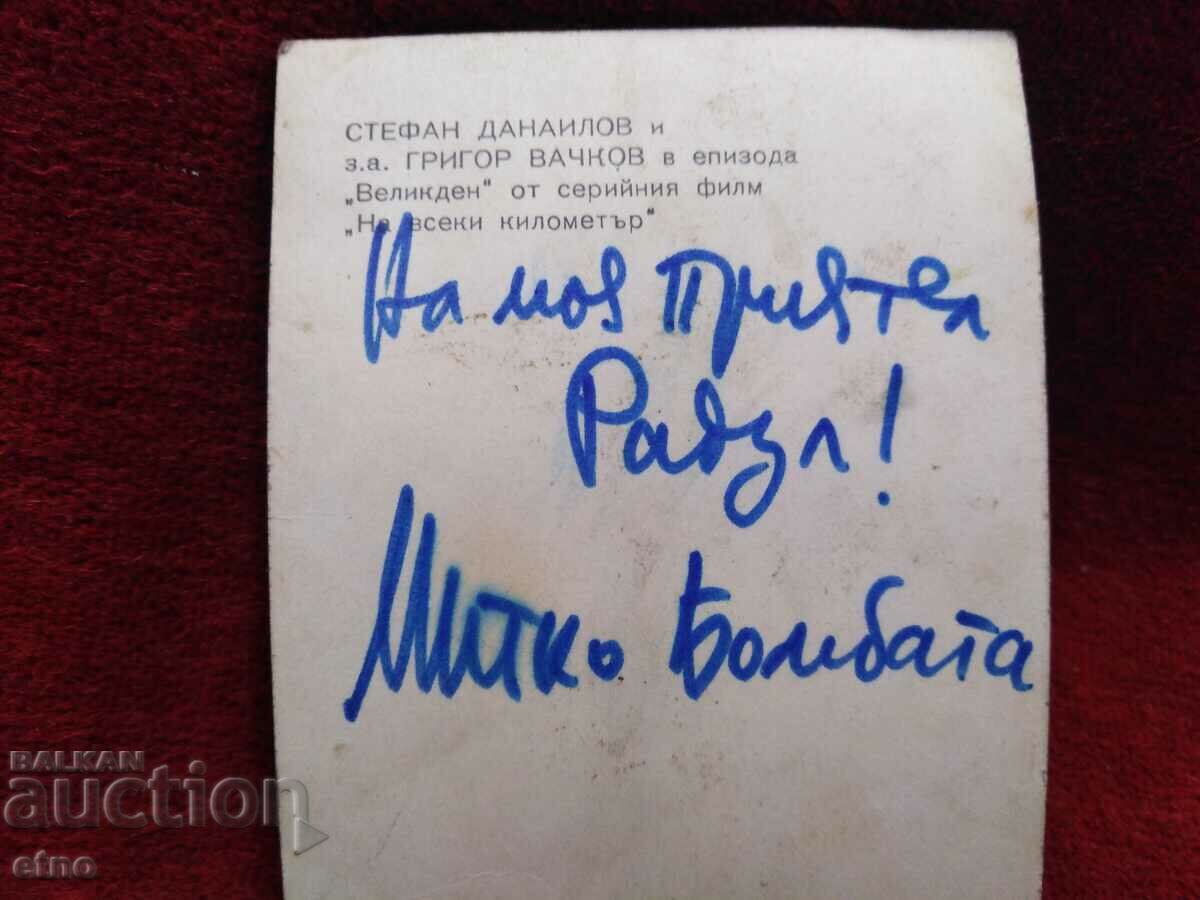 СТЕФАН ДАНАИЛОВ и
з.а. ГРИГОР ВАЧКОВ в епизода
„Великден" от серийния филм
„На всеки километър"
На моя приятел
Радул!
Митко Бомбата
BALKAN
auction
etno